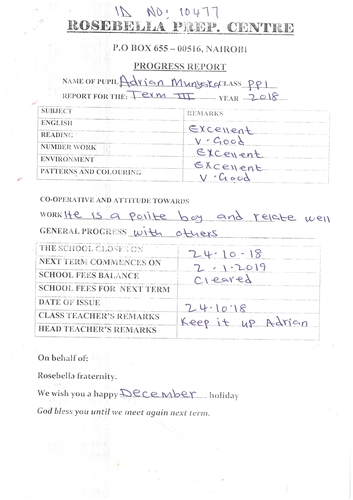 ID NO: 10477
ROSEBELLA PREP. CENTRE
P.O BOX 655 – 00516, NAIROBI
PROGRESS REPORT
NAME OF PUPIL Adrian CLASS PP1
REPORT FOR THE: Term III YEAR 2018
SUBJECT REMARKS
ENGLISH Excellent
READING V. Good
NUMBER WORK Excellent
ENVIRONMENT Excellent
PATTERNS AND COLOURING V. Good
CO-OPERATIVE AND ATTITUDE TOWARDS
WORK He is a polite boy and relate well
GENERAL PROGRESS with others
THE SCHOOL CLOSES ON 24-10-18
NEXT TERM COMMENCES ON 2-1-2019
SCHOOL FEES BALANCE Cleared
SCHOOL FEES FOR NEXT TERM
DATE OF ISSUE 24-10-18
CLASS TEACHER'S REMARKS Keep it up Adrian
HEAD TEACHER'S REMARKS
On behalf of:
Rosebella fraternity.
We wish you a happy December holiday
God bless you until we meet again next term.